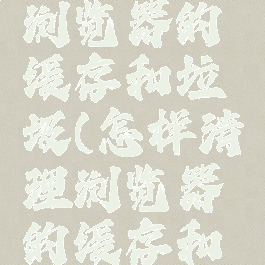 浏览器的
缓存和垃
圾(怎样清
理浏览器
的缓存和